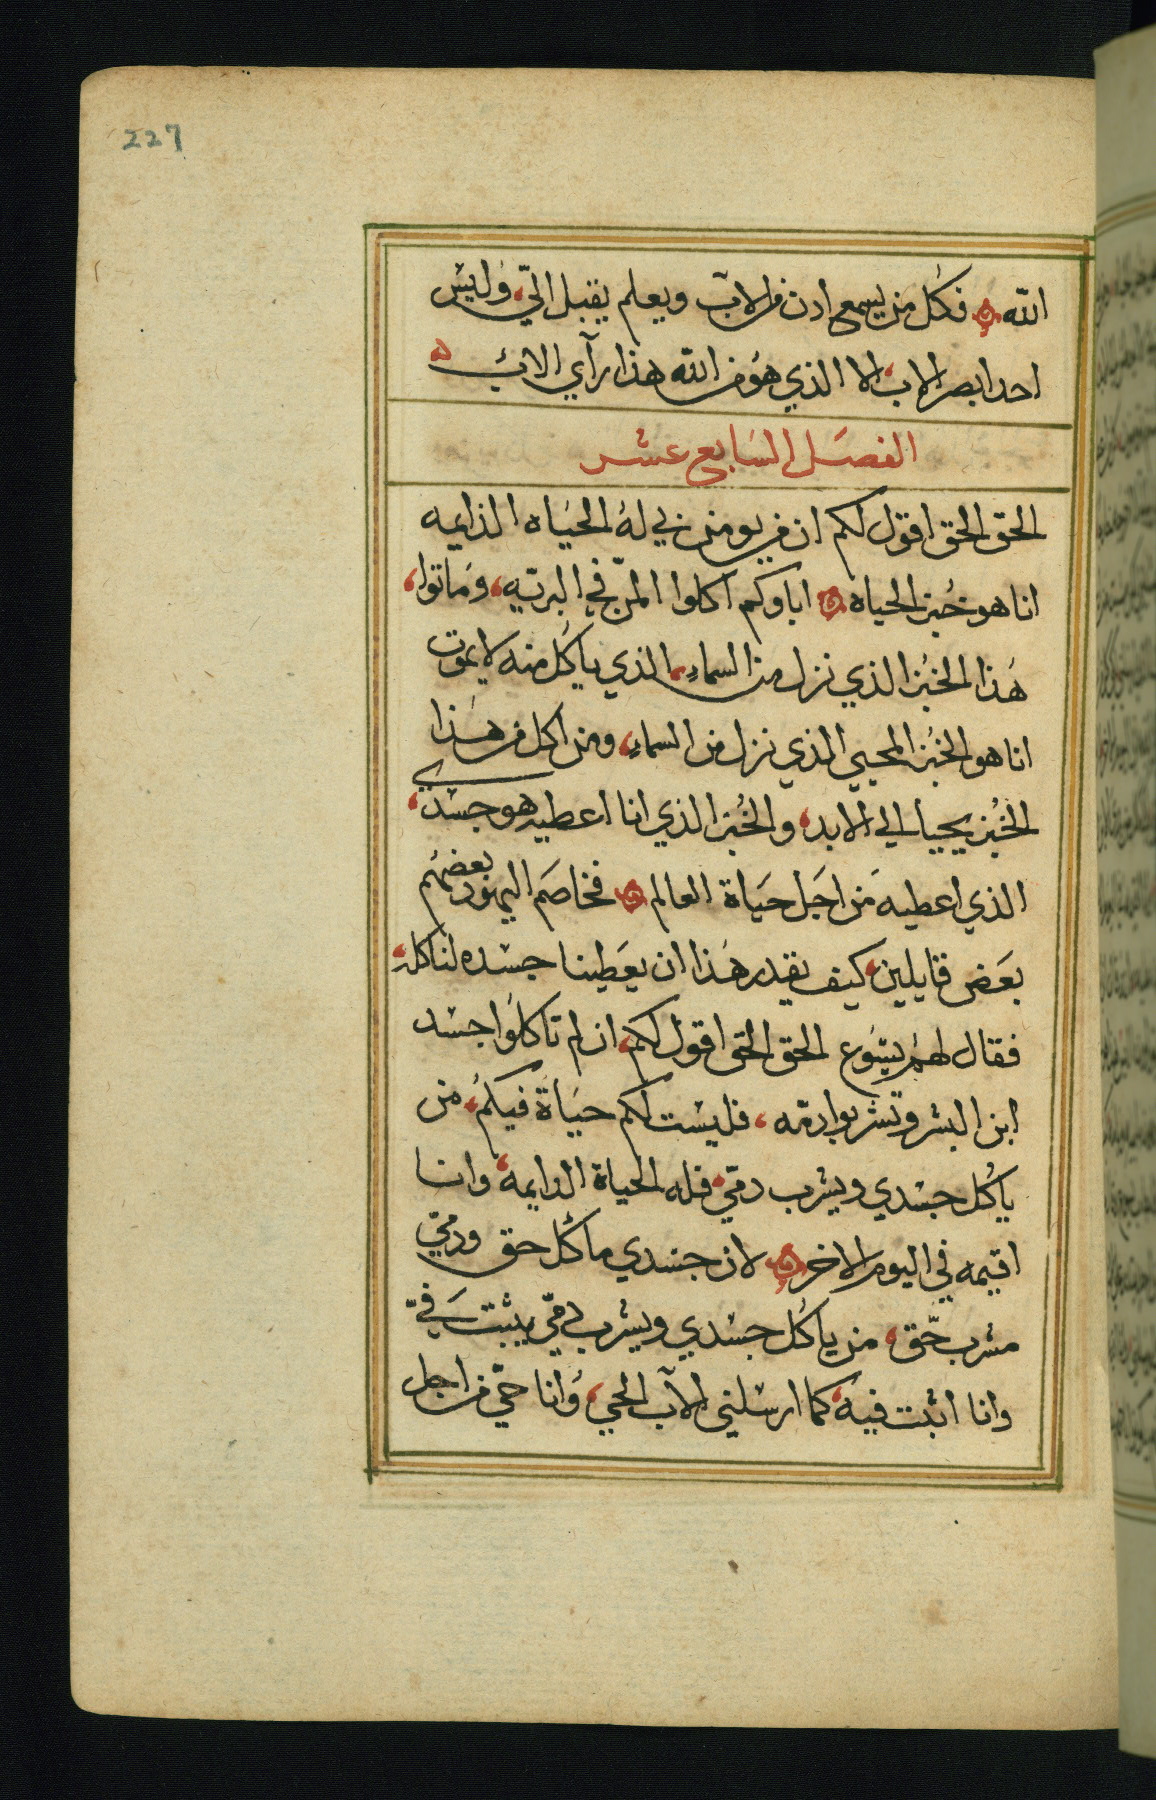 227
الله فكل من يسمع ادن من الاب ويعلم يقبل اليّ، وليس
احد ابصر الاب، الا الذي هو من الله هذا رآي الاب
الفصل السابع عشر
الحق الحق اقول لكم ان من يومن بي له الحياه الدايمه
انا هو خبز الحياه اباوكم اكلوا المنّ في البريّه، وماتوا،
هذا الخبز الذي نزل من السماء الذي ياكل منه لا يموت
انا هو الخبز المحيي الذي نزل من السماء، ومن اكل من هذا
الخبز يحيا الي الابد، والخبز الذي انا اعطيه هو جسدي،
الذي اعطيه من اجل حياة العالم فخاصم اليهود بعضهم
بعض قايلين، كيف يقدر هذا ان يعطينا جسده لناكله،
فقال لهم يسوع الحق الحق اقول لكم، ان لم تاكلوا جسد
ابن البشر وتشربوا دمّه، فليست لكم حياة فيكم، من
ياكل جسدي ويشرب دمّي، فله الحياة الدايمه، وانا
اقيمه في اليوم الاخر لان جسدي ماكل حق ودمّي
مشرب حّق، من ياكل جسدي ويشرب دمّي يثبت فيّ
وانا اثبت فيه، كما ارسلني الآب الحي، وانا حيّ من اجل